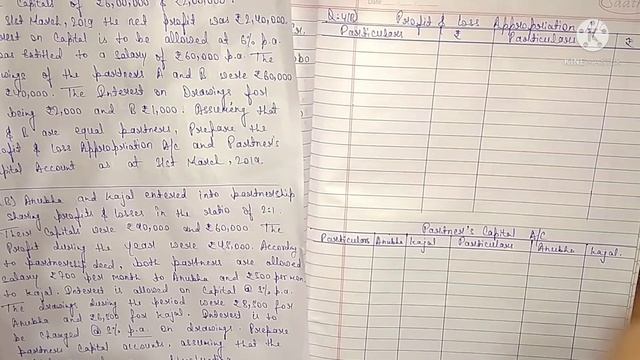 Capitals of ₹6,00,000 & ₹2,00,000.
31st March, 2019 the net profit was ₹2,40,000.
on Capital is to be allowed at 6% p.a.
was entitled to a salary of ₹60,000 p.a. The
of the partners A and B were ₹60,000
The Interest on Drawings for
being ₹2,000 and B ₹1,000. Assuming that
& B are equal partners, Prepare the
& Loss Appropriation A/c and Partner's
Capital Account as at 31st March, 2019.
B) Anubha and Kajal entered into partnership
sharing profits & losses in the ratio of 2:1.
Their Capitals were ₹90,000 and ₹60,000. The
Profit during the year were ₹45,000. According
to partnership deed, both partners are allowed
salary ₹700 per month to Anubha and ₹500 per
to Kajal. Interest is allowed on Capital @ 5% p.a.
The drawings during the period were ₹8,500 for
Anubha and for Kajal. Interest is to
be charged @ 5% p.a. on drawings. Prepare
partners Capital accounts, assuming that the
Profit & Loss Appropriation
Particulars ₹ Particulars ₹
Partner's Capital A/C
Particulars Anubha Kajal Particulars Anubha Kajal.